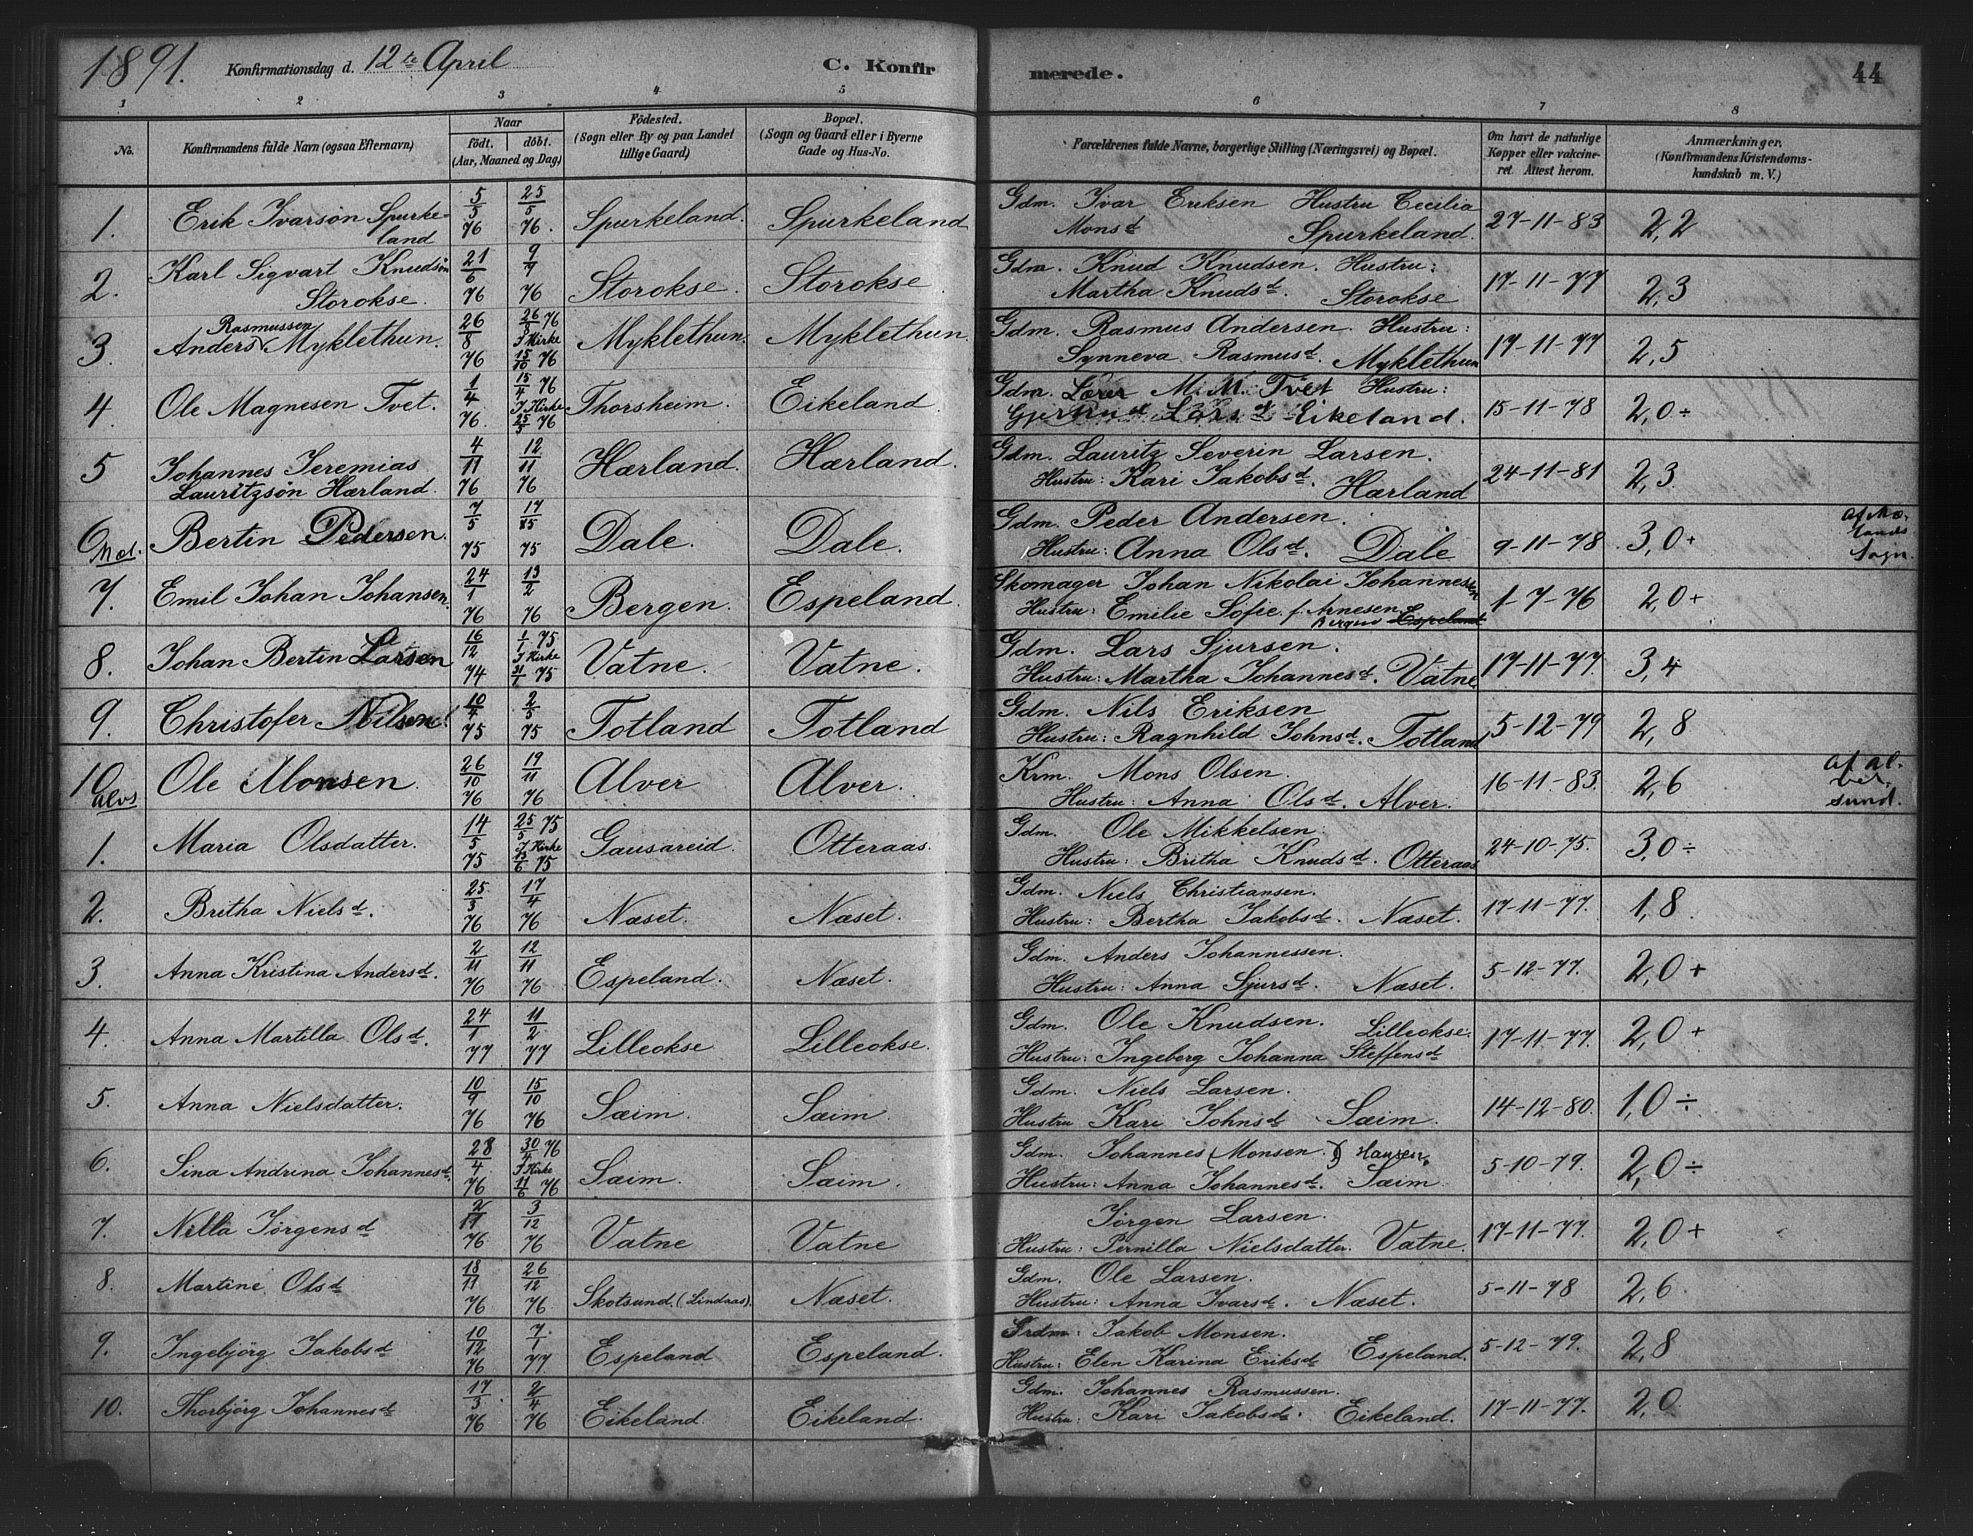 1891. Konfirmationsdag d. 12te April C. Konfirmerede. 44
1 2 3 4 5 6 7 8
No. Konfirmandens fulde Navn (ogsaa Efternavn) Naar födt. döbt. (Aar, Maaned og Dag) Födested. (Sogn eller By og paa Landet tillige Gaard) Bopæl. (Sogn og Gaard eller i Byerne Gade og Hus-No. Forældrenes fulde Navne, borgerlige Stilling (Næringsvei) og Bopæl. Om havt de naturlige Kopper eller vakcineret. Attest herom. Anmærkninger, (Konfirmandens Kristendomskundskab m. V.)
1. Erik Ivarsön Spurkeland 5/5 76 25/5 76. Spurkeland. Spurkeland Gdm. Ivar Eriksen Hustru Cecilia Monsd Spurkeland. 27-11-83 2,2
2. Karl Sigvart Knudsön Storokse. 21/6 76 9/7 76 Storokse. Storokse Gdm. Knud Knudsen. Hustru: Martha Knudsd. Storokse 17-11-77 2,3
3. Anders Rasmussen Myklethun. 26/8 76 26/8 76 I Kirke 15/10 76 Myklethun. Myklethun Gdm. Rasmus Andersen. Hustru: Synneva Rasmusd. Myklethun 17-11-77 2,5
4. Ole Magnesen Tvet. 1/4 76. 15/4 76 I Kirke 25/5 76 Thorsheim. Eikeland. Gdm. Lærer M. M. Tvet Hustru: Gjertrud Larsd Eikeland. 15-11-78 2,0÷
5 Johannes Jeremias Lauritzsön Hærland. 4/11 76 12/11 76 Hærland. Hærland. Gdm. Lauritz Severin Larsen. Hustru: Kari Jakobsd. Hærland 24-11-81 2,3
6 Mæl. Bertin Pedersen. 7/5 75 17/85 75 Dale. Dale. Gdm. Peder Andersen. Hustru: Anna Olsd. Dale 9-11-78 3,0+ af Mælands Sogn.
7. Emil Johan Johansen. 24/1 76 13/2 76 Bergen. Espeland. Skomager Johan Nikolai Johannessen Hustru: Emilie Sofie f. Arnesen. Bergen Espeland 1-7-76 2,0+
8. Johan Bertin Larsen 16/12 74 1/1 75 I Kirke 31/1 75 Vatne. Vatne. Gdm. Lars Sjursen. Hustru: Martha Johannesd. Vatne 17-11-77. 3,4
9. Christofer Nilsen 10/4 75 2/5 75 Totland Totland Gdm. Nils Eriksen Hustru: Ragnhild Johnsd. Totland 5-12-79 2,8
10 Alvs Ole Monsen. 26/10 76 19/11 76 Alver Alver. Krm. Mons Olsen. Hustru: Anna Olsd. Alver. 16-11-83. 2,6 af Alversund.
1. Maria Olsdatter. 14/5 75 25/5 75 I Kirke 13/6 75 Gausareid. Otteraas. Gdm. Ole Mikkelsen. Hustru: Britha Knudsd. Otteraas 24-10-75. 3,0÷
2. Britha Nielsd. 25/3 76 17/4 76 Næset. Næset. Gdm. Niels Christiansen. Hustru: Bertha Jakobsd. Næset. 17-11-77. 1,8
3. Anna Kristina Andersd. 2/11 76 12/11 76 Espeland. Næset. Gdm. Anders Johannessen. Hustru: Anna Sjursd. Næset. 5-12-77. 2,0+
4. Anna Martilla Olsd. 24/1 77 11/2 77 Lilleokse Lilleokse. Gdm. Ole Knudsen. Lilleokse. Hustru: Ingeborg Johanna Steffensd 17-11-77. 2,0+
5. Anna Nielsdatter. 10/9 76 15/10 76 Sæim. Sæim. Gdm. Niels Larsen. Hustru Kari Johnsd Sæim. 14-12-80. 1,0÷
6. Sina Andrina Johannesd. 28/4 76 30/4 76 I Kirke 11/6 76 Sæim. Sæim. Gdm. Johannes (Monsen.) Hansen. Hustru: Anna Johannesd. Sæim 5-10-79. 2,0÷
7. Nilla Jørgensd 2/11 76. 3/12 76 Vatne Vatne Jørgen Larsen. Hustru: Pernilla Nielsdatter. Vatne. 17-11-77. 2,0+
8. Martine Olsd 18/11 76 26/12 76 Skotsund. (Lindaas). Næset. Gdm. Ole Larsen. Hustru: Anna Ivarsd. Næset. 5-11-78 2,6.
9. Ingebjörg Jakobsd 10/12 76 7/1 77 Espeland Espeland. Grdm: Jakob Monsen. Hustru: Elen Karina Eriksd Espeland. 5-12-79. 2,8
10. Thorbjörg Johannesd 17/3 76 2/4 76 Eikeland. Eikeland. Gdm. Johannes Rasmussen. Hustru: Kari Jakobsd. Eikeland. 17-11-77. 2,0